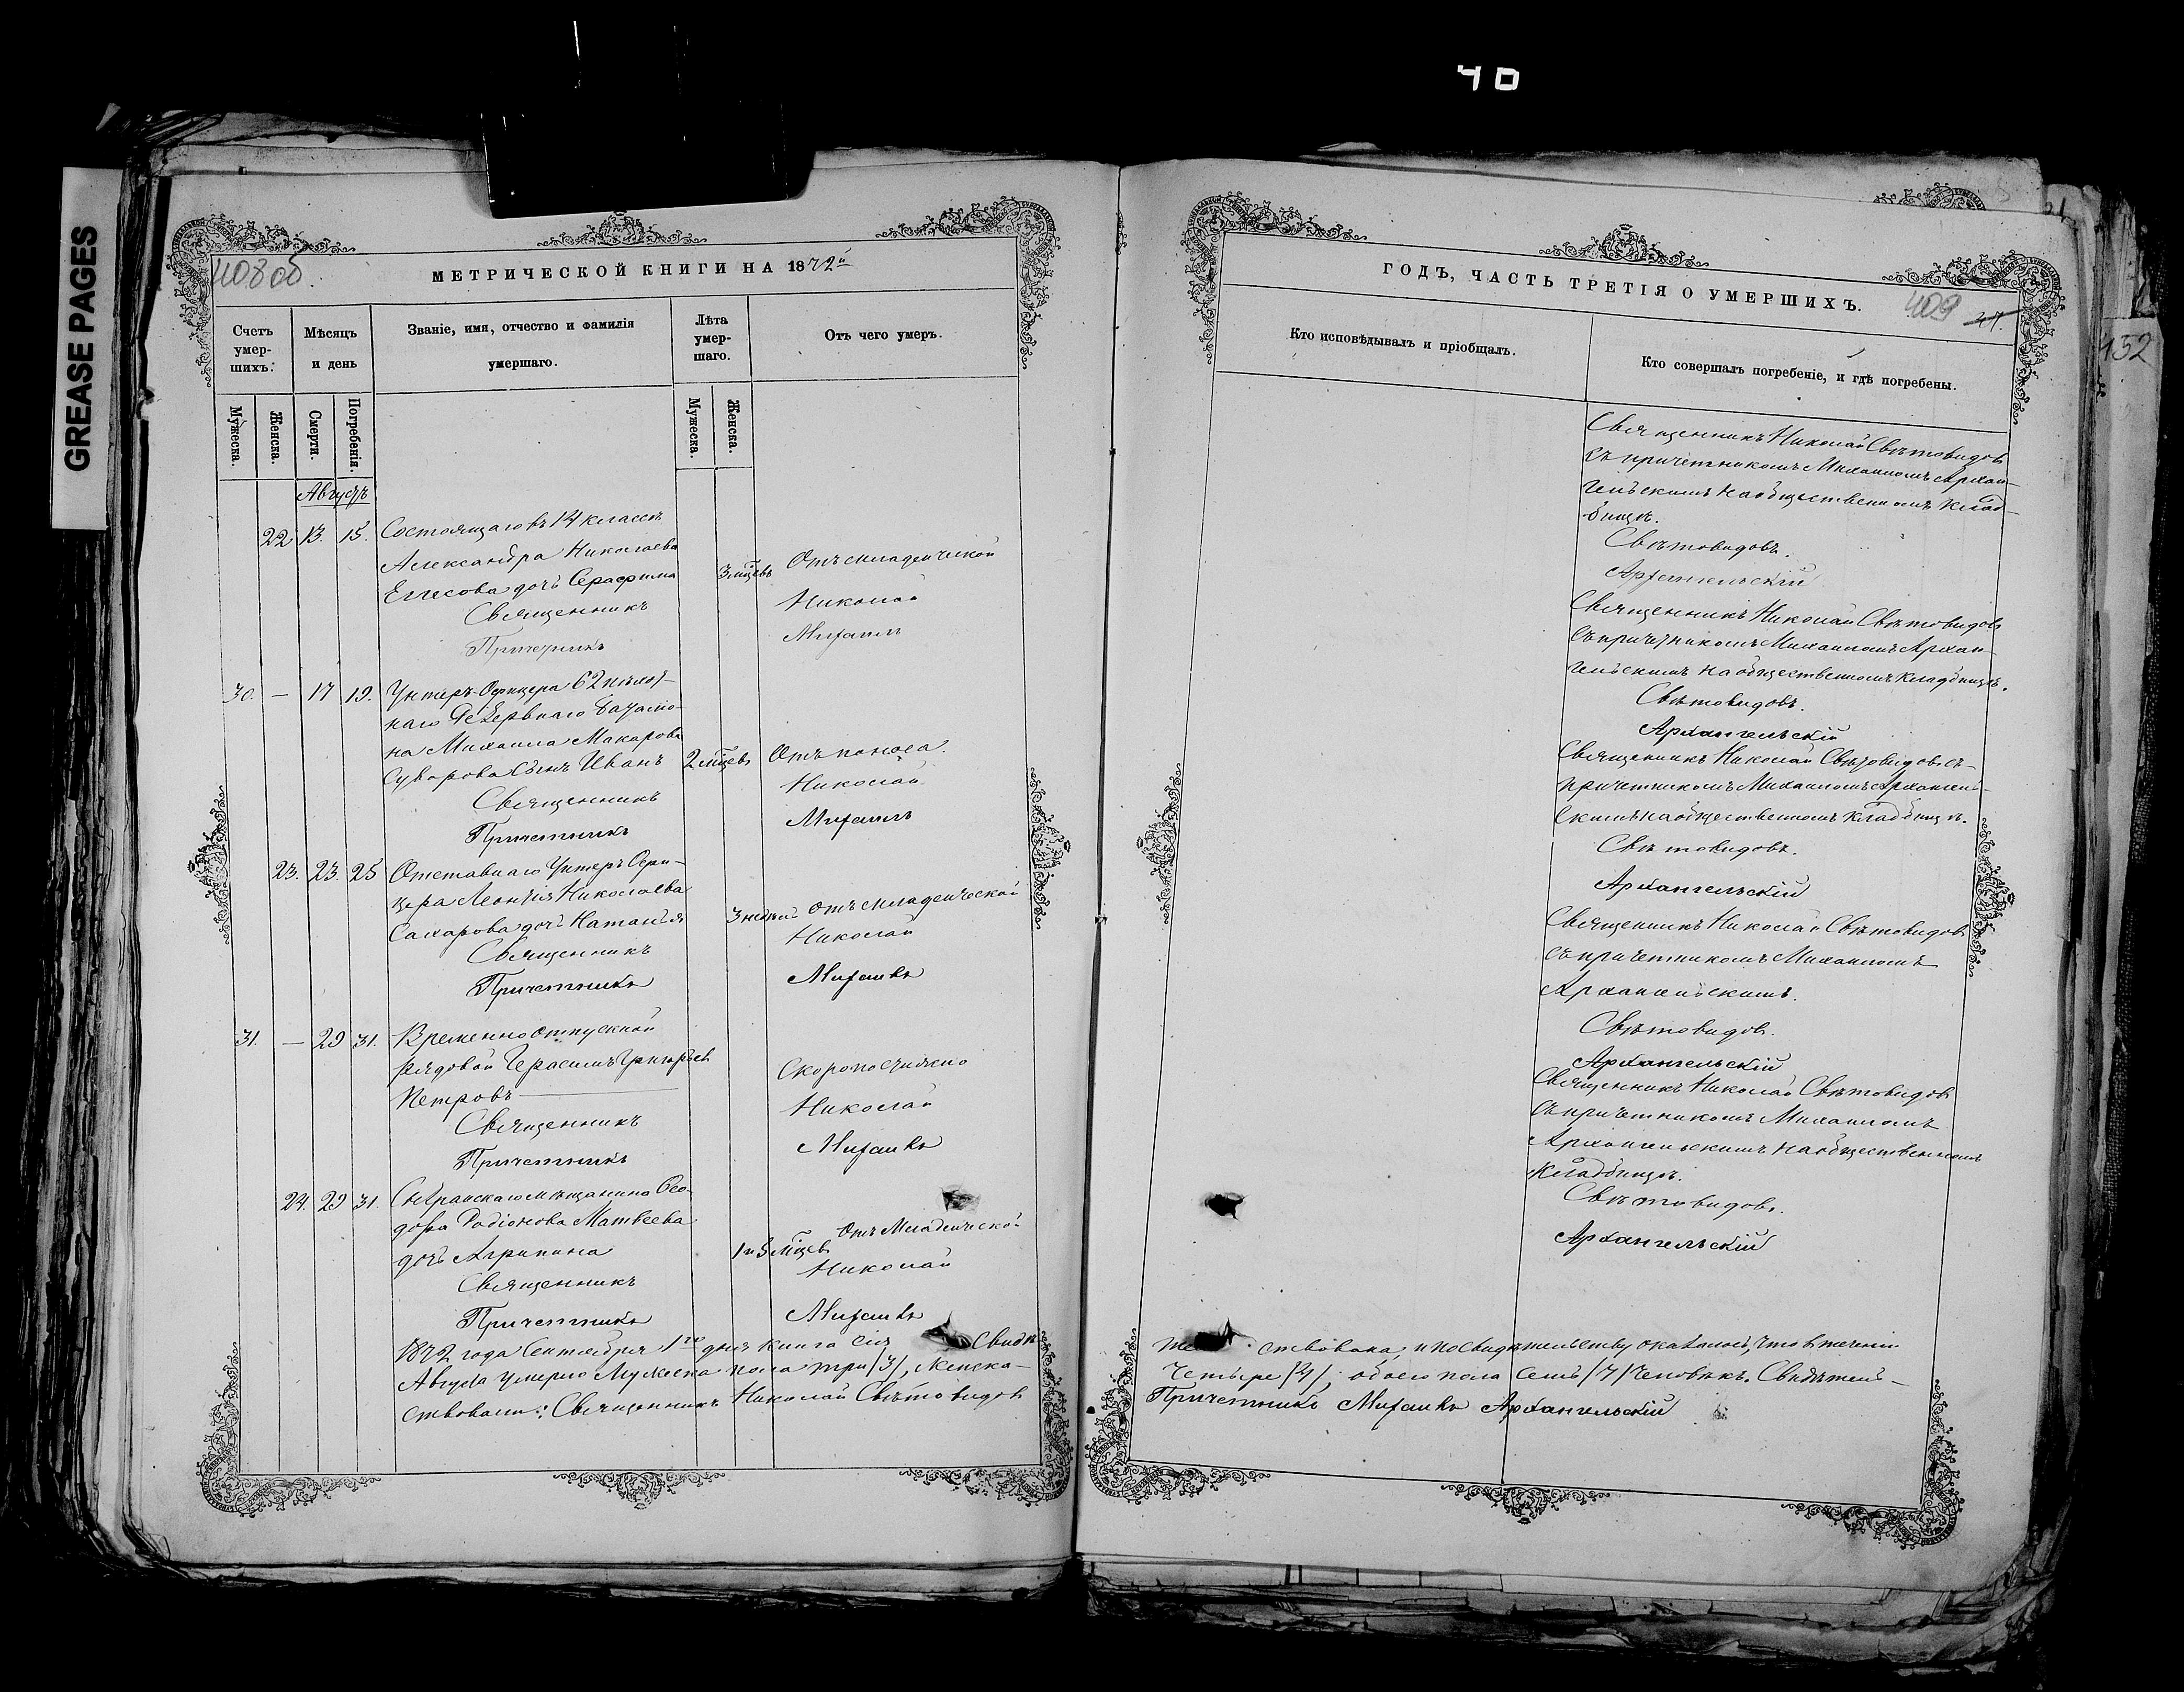 40
GREASE PAGES
408 об.
МЕТРИЧЕСКОЙ КНИГИ НА 1872й
Счетъ умершихъ.
Мѣсяцъ и день
Званіе, имя, отчество и фамилія умершаго.
Лѣта умершаго.
Отъ чего умеръ.
Мужеска.
Женска.
Смерти.
Погребенія.
Мужеска.
Женска.
Августъ
22 13. 15. Состоящаго въ 14 классѣ
Александра Николаева
дочь Серафима
3 мцевъ Отъ младенческой
Священникъ Николай
Причетникъ Михаилъ
30. — 17 19. Унтеръ-Офицера 62 пѣхот-
наго Резервнаго Баталіо-
на Михаила Макарова
Суворова сынъ Иванъ 2 мцевъ Отъ поноса.
Священникъ Николай
Причетникъ Михаилъ
23. 23. 25 Отставнаго Унтеръ Офи-
цера Леонтія Николаева
Сахарова дочь Наталья 3 недѣль отъ младенческой
Священникъ Николай
Причетникъ Михаилъ
31. — 29 31. Временно отпускной
рядовой Герасимъ Григорьевъ
Петровъ Скоропостижно
Священникъ Николай
Причетникъ Михаилъ
24. 29 31. Сызранскаго мѣщанина Ѳео-
дора Родіонова Матвѣева
дочь Агрипина 1 и 3 мцевъ Отъ Младенческой
Священникъ Николай
Причетникъ Михаилъ
1872 года Сентября 1го дня книга сія Свидѣ
Августа умерло Мужеска пола три /3/, Женска
ствовали: Священникъ Николай Свѣтовидовъ
ГОДЪ, ЧАСТЬ ТРЕТІЯ О УМЕРШИХЪ.
409
132
Кто исповѣдывалъ и пріобщалъ.
Кто совершалъ погребеніе, и гдѣ погребены.
Священникъ Николай Свѣтовидовъ
съ причетникомъ Михаиломъ Архан-
гельскимъ на общественномъ клад-
бищѣ.
Свѣтовидовъ.
Архангельскій
Священникъ Николай Свѣтовидовъ
съ причетникомъ Михаиломъ Архан-
гельскимъ на общественномъ кладбищѣ.
Свѣтовидовъ.
Архангельскій
Священникъ Николай Свѣтовидовъ съ
причетникомъ Михаиломъ Архангель-
скимъ на общественномъ кладбищѣ.
Свѣтовидовъ.
Архангельскій
Священникъ Николай Свѣтовидовъ
съ причетникомъ Михаиломъ
Архангельскимъ.
Свѣтовидовъ.
Архангельскій
Священникъ Николай Свѣтовидовъ
съ причетникомъ Михаиломъ
Архангельскимъ на общественномъ
кладбищѣ.
Свѣтовидовъ.
Архангельскій
ствована, и по свидѣтельству оказалось, что въ теченіи
Четыре /4/; обоего пола семь /7/ человѣкъ. Свидѣтель-
Причетникъ Михаилъ Архангельскій